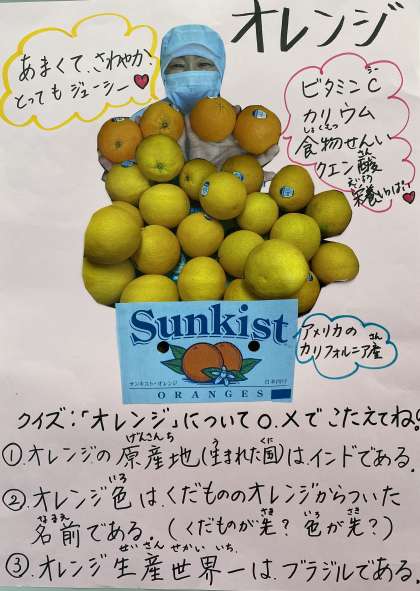 オレンジ
あまくて、さわやか!
とってもジューシー
ビタミンC
シー
カリウム
しょくもつ
食物せんい
クエン酸
さん
えいよう
栄養いっぱい!
Sunkist
サンキスト・オレンジ
日本向け
ORANGES
アメリカの
カリフォルニア産
さん
クイズ:「オレンジ」について○.×でこたえてね!
げんさんち
くに
①.オレンジの原産地(生まれた国)は、インドである。
いろ
②.オレンジ色は、くだもののオレンジからついた
なまえ
さき
いろ
さき
名前である。(くだものが先?色が先?)
せいさん
せかい
いち
③.オレンジ生産世界一は、ブラジルである。